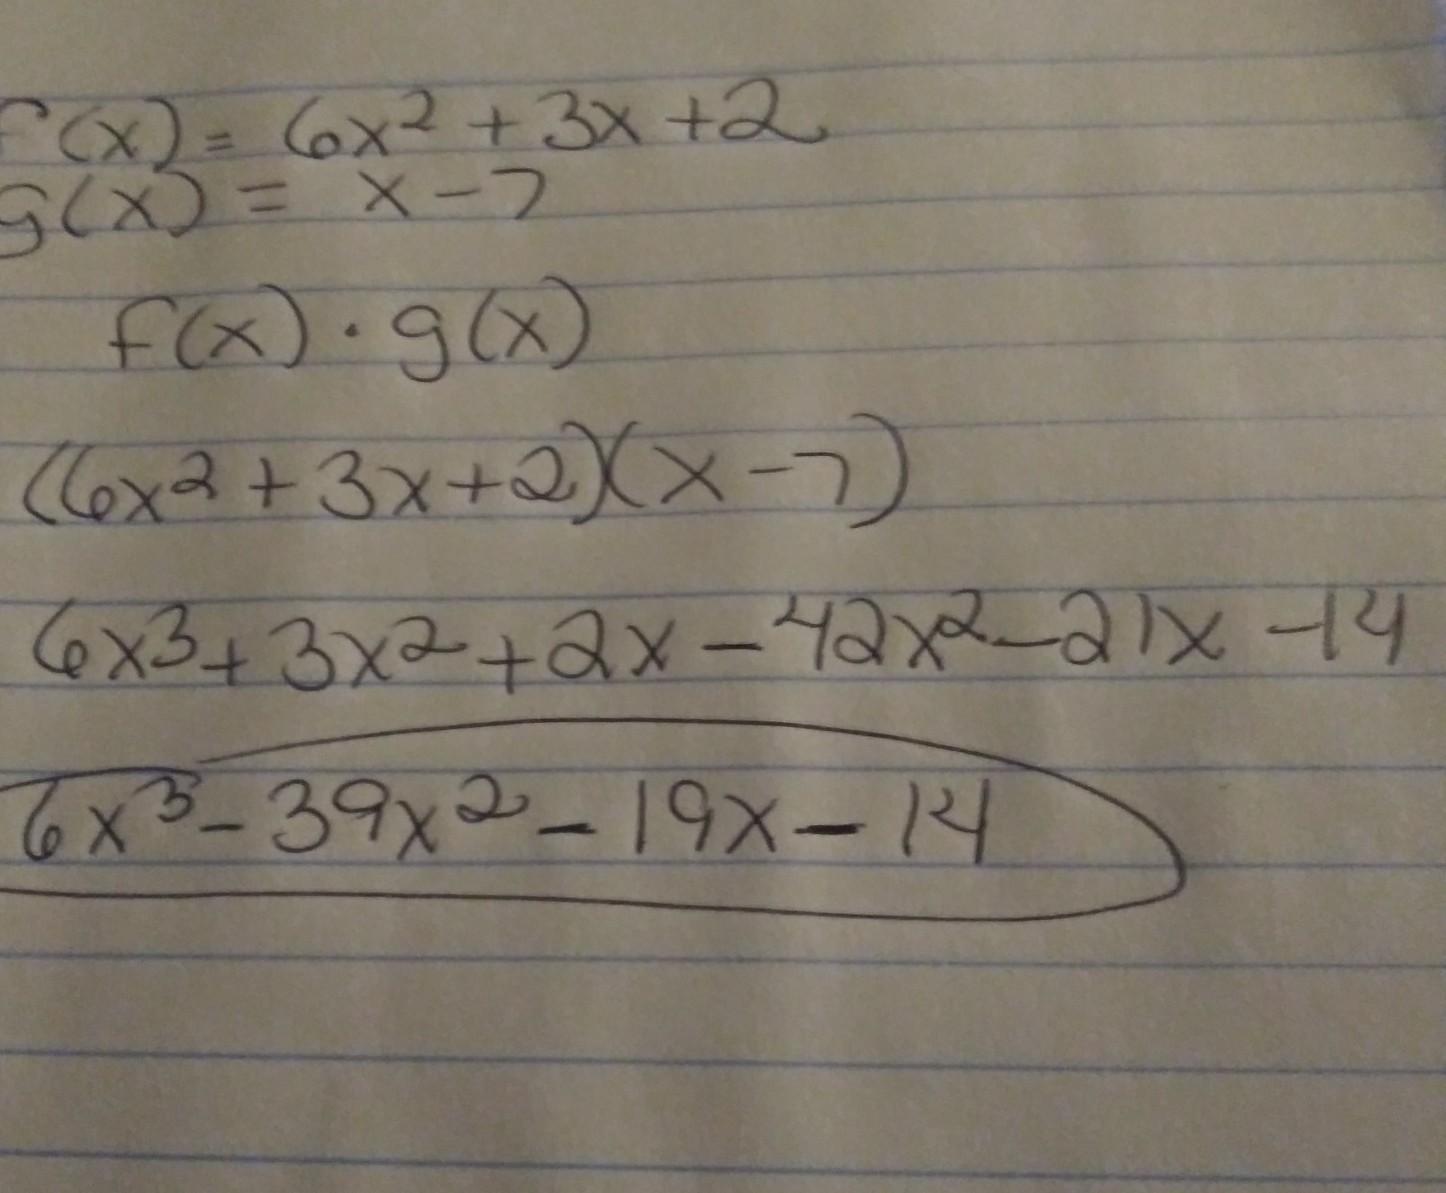 f(x) = 6x² + 3x + 2
g(x) = x - 7
f(x) · g(x)
(6x² + 3x + 2)(x - 7)
6x³ + 3x² + 2x - 42x² - 21x - 14
6x³ - 39x² - 19x - 14